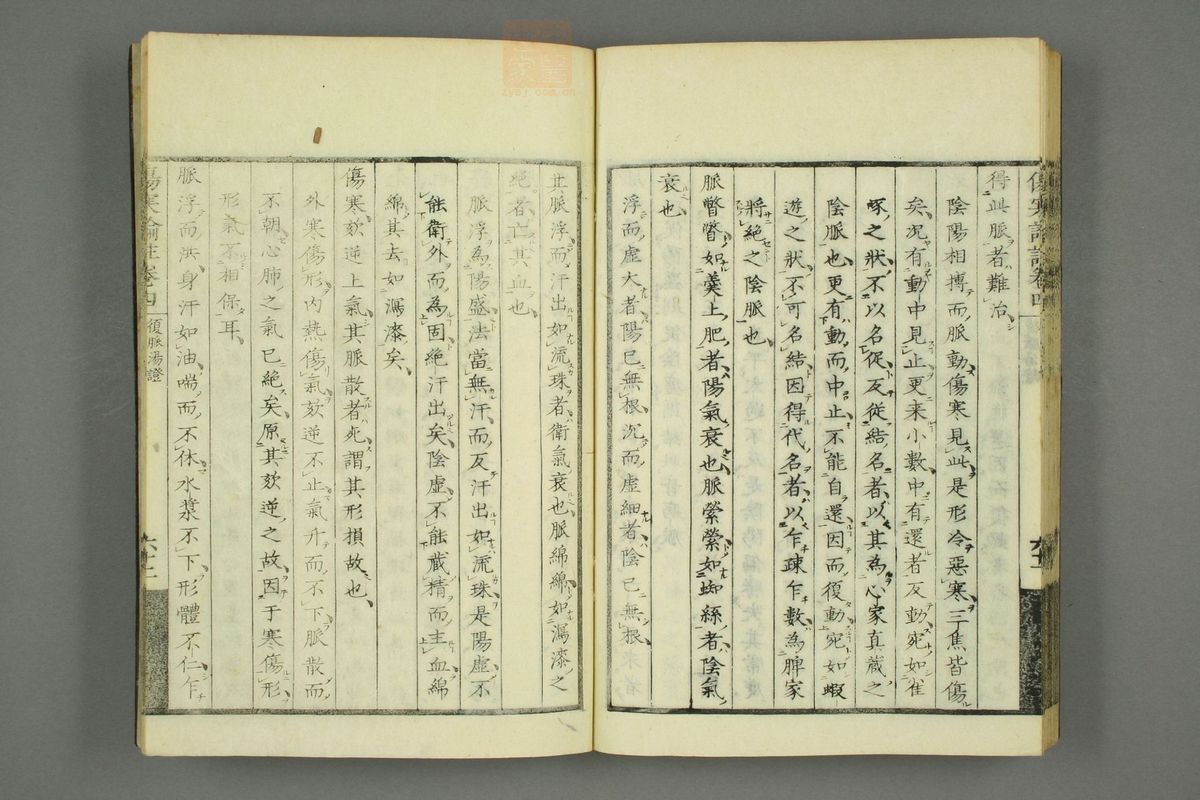 傷寒論註卷四
得此脈者難治
陰陽相搏而脈動傷寒見此是形冷惡寒三焦皆傷
矣况有動中見止更来小數中有還者反動宛如雀
啄之狀不以名促反從結名者以其為心家真蔵之
陰脈也更有動而中止不能自還因而復動宛如蝦
遊之狀不可名結因得代名者以乍疎乍數為脾家
將絕之陰脈也
脈瞥瞥如羹上肥者陽氣衰也脈縈縈如蜘絲者陰氣
衰也
浮而虛大者陽已無根沉而虛細者陰已無根
其脈浮而汗出如流珠者衛氣衰也脈綿綿如瀉漆之
絕者亡其血也
脈浮為陽盛法當無汗而反汗出如流珠是陽虛不
能衛外而為固絕汗出矣陰虛不能蔵精而主血綿
綿其去如瀉漆矣
傷寒欬逆上氣其脈散者死謂其形損故也
外寒傷形內熱傷氣欬逆不止氣升而不下脈散而
不朝心肺之氣已絕矣原其欬逆之故因于寒傷形
形氣不相保耳
脈浮而洪身汗如油喘而不休水漿不下形體不仁乍
傷寒論註卷四
復脈湯證
zysj.com.cn